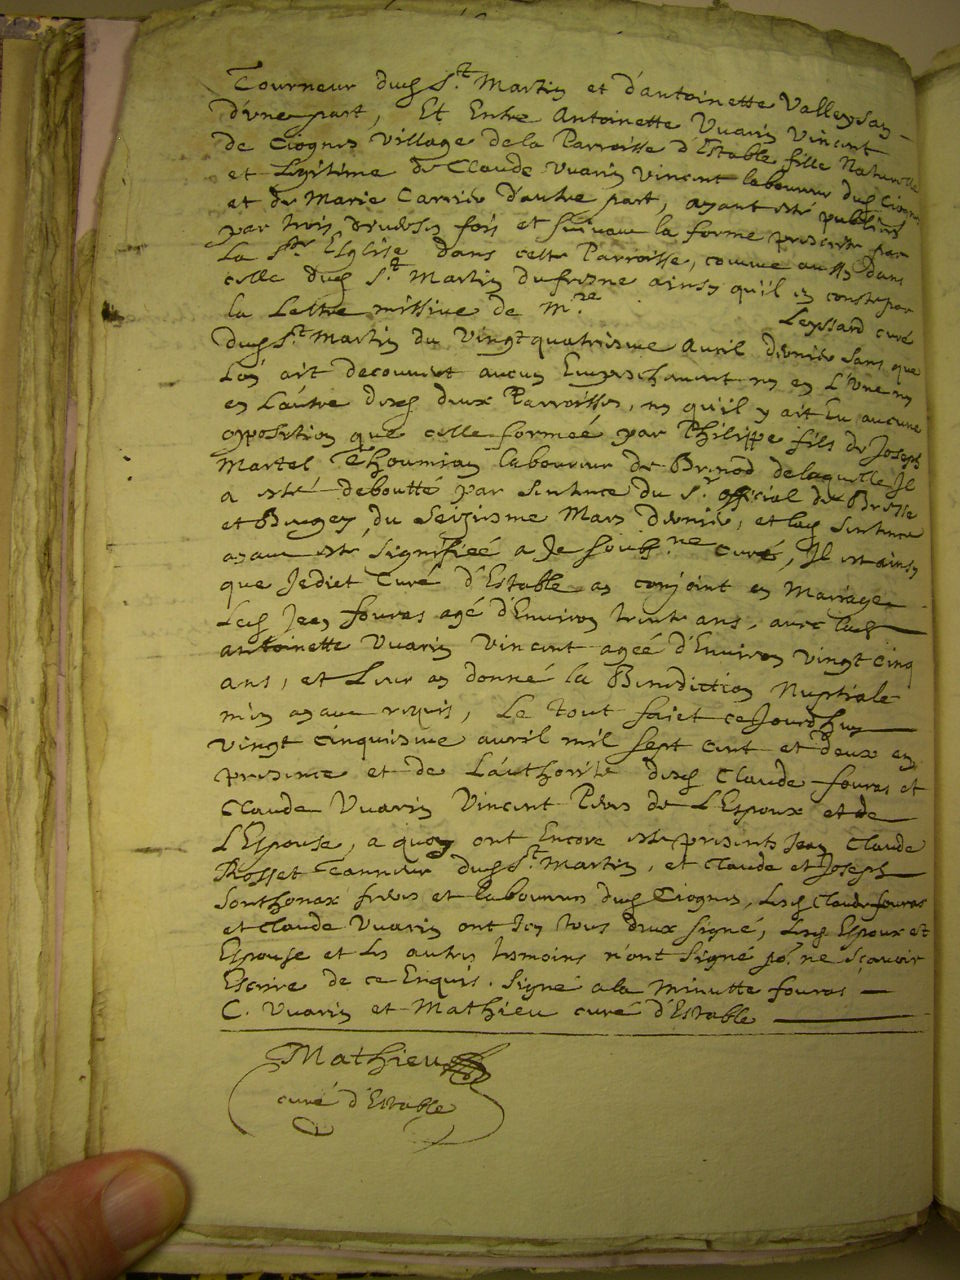 Tourneur dud St. Martin et d'antoinette Valleysan
d'une part, Et Entre Antoinette Vuarin Vincent
de Ciognes Village de la Parroisse d'Estable fille Naturelle
et Legitime de Claude Vuarin Vincent laboureur dud Ciognes
et de Marie Carrier d'autre part, ayant esté publiées
par trois diverses fois et suivant la forme prescrite par
La Ste Eglise dans cette Parroisse, comme aussy dans
celle dud St. Martin du fresne ainsy qu'il en conste par
la Lettre missive de Mre Leyssard curé
dud St Martin du Vingt quatriesme Avril dernier sans que
L'on ait decouvert aucun Empeschement ny en L'Une ny
en L'autre desd deux Parroisses, ny qu'il y ait Eu aucune
opposition que celle formeé par Philippe fils de Joseph
Martel Thoumian laboureur de Brenod de laquelle Il
a esté deboutté par Sentence du Sr. official de Bresse
et Bugey, du Seiziesme Mars dernier, et lad Sentence
ayant esté signifieé a Je soubsne curé, Il est ainsy
que Jedict Curé d'Estable ay conjoint en Mariage
Led Jean fouras agé d'Environ trente ans, avec lad
antoinette Vuarin Vincent ageé d'Environ Vingt cinq
ans, et Leur ay donné la Benediction Nuptiale
m'en ayant requis, Le tout faict ce Jourdhuy
vingt cinquiesme avril mil sept cent et deux en
presence et de L'authorité desd Claude fouras et
Claude Vuarin Vincent Peres de L'Espoux et de
L'Espouse, a quoy ont Encore esté presents Jean Claude
Rosset Tanneur dud St. Martin, et Claude et Joseph
Sonthonax freres et laboureurs dud Ciognes, Lesd Claude fouras
et Claude Vuarin ont Icy tous deux signé, Lesd Espoux et
Espouse et les autres tesmoins n'ont signé po.r ne sçavoir
Escrire de ce Enquis. Signé a la Minutte fouras
C. Vuarin et Mathieu curé d'Estable
Mathieu
curé d'Estable